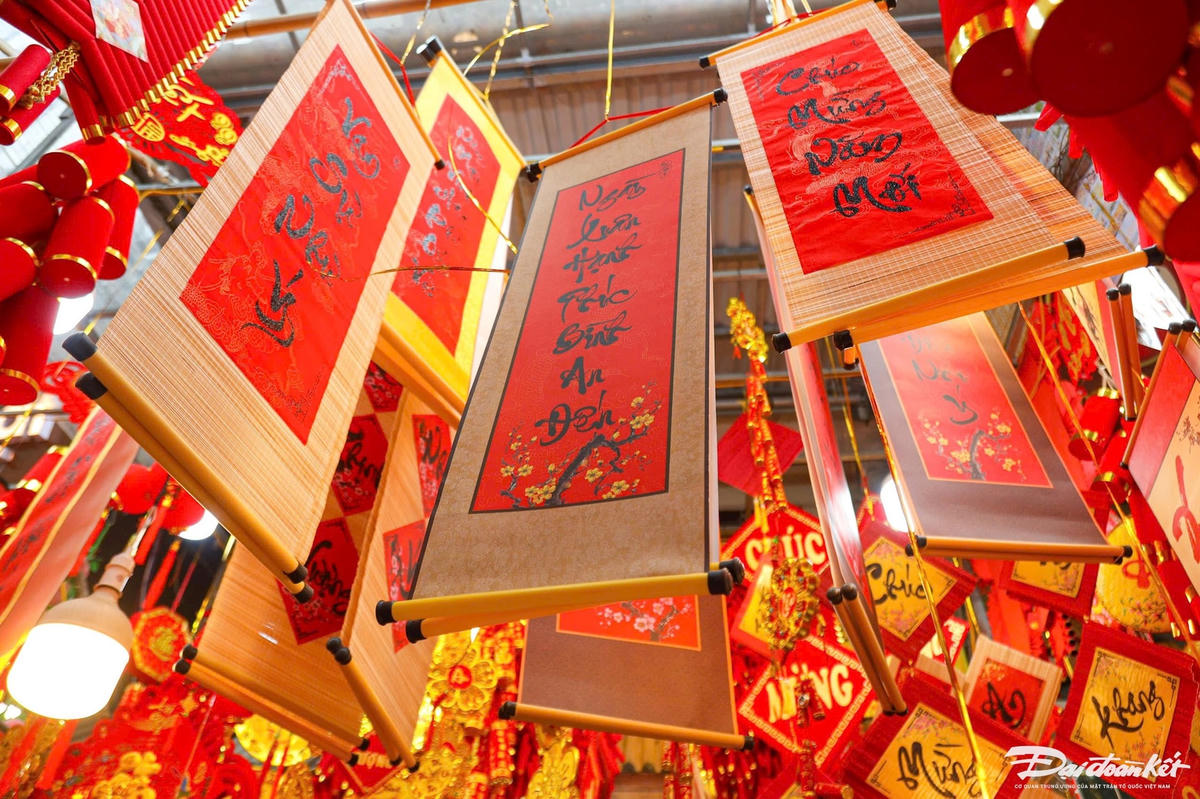 Vạn
Sự
Như
Ý
Ngày
Xuân
Hạnh
Phúc
Bình
An
Đến
Chúc
Mừng
Năm
Mới
CHÚC
MỪNG
Chúc
Mừng
An
Khang
Đại đoàn kết
CƠ QUAN TRUNG ƯƠNG CỦA MẶT TRẬN TỔ QUỐC VIỆT NAM